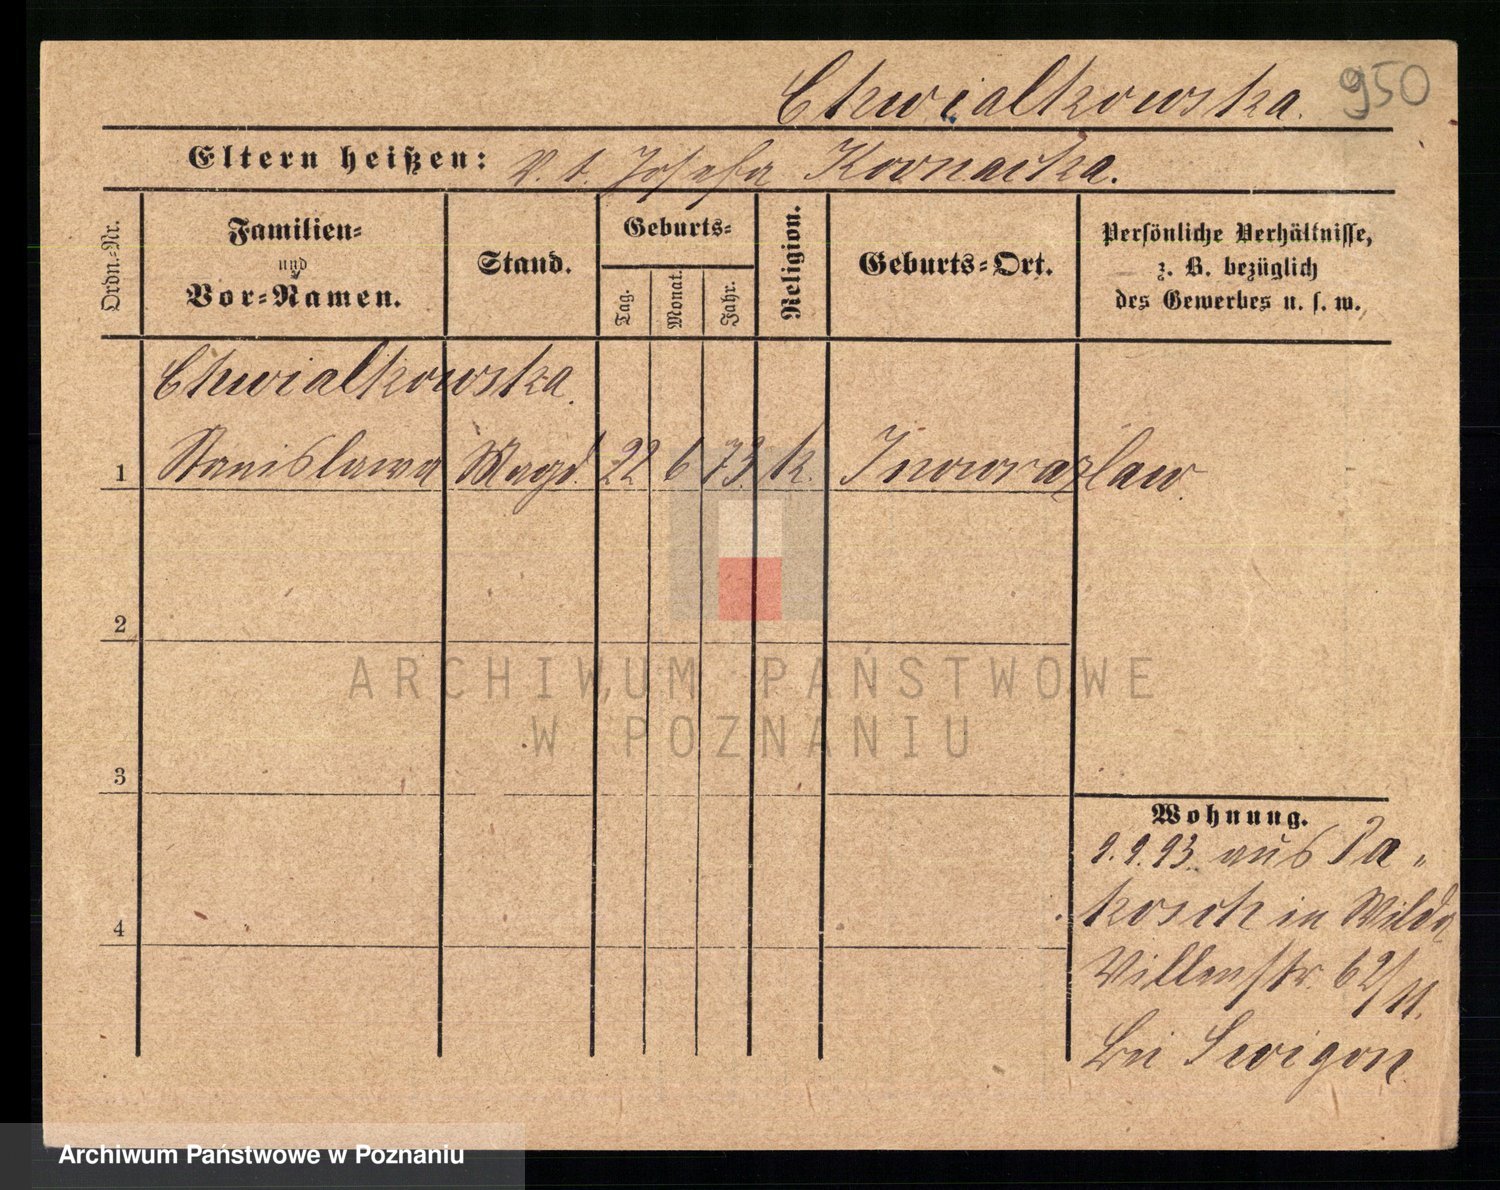 Chwialkowska. 950
Eltern heißen: V. t. Josefa Kornacka.
Ordn.-Nr.
Familien-
und
Vor-Namen.
Stand.
Geburts-
Tag.
Monat.
Jahr.
Religion.
Geburts-Ort.
Persönliche Verhältnisse,
z. B. bezüglich
des Gewerbes u. s. w.
Chwialkowska.
1 Stanislawa Magd. 22 6 73. k. Inowrazlaw.
2
3
4
Wohnung.
9.9.93. aus Pa-
kosch in Wilda
Villenstr. 62/11.
bei Swigon
ARCHIWUM PAŃSTWOWE
W POZNANIU
Archiwum Państwowe w Poznaniu